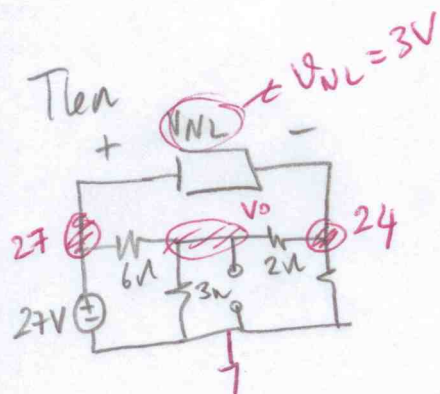 Then
VNL
VNL = 3V
+
-
27
V0
24
6Ω
2Ω
3Ω
27V
+
-